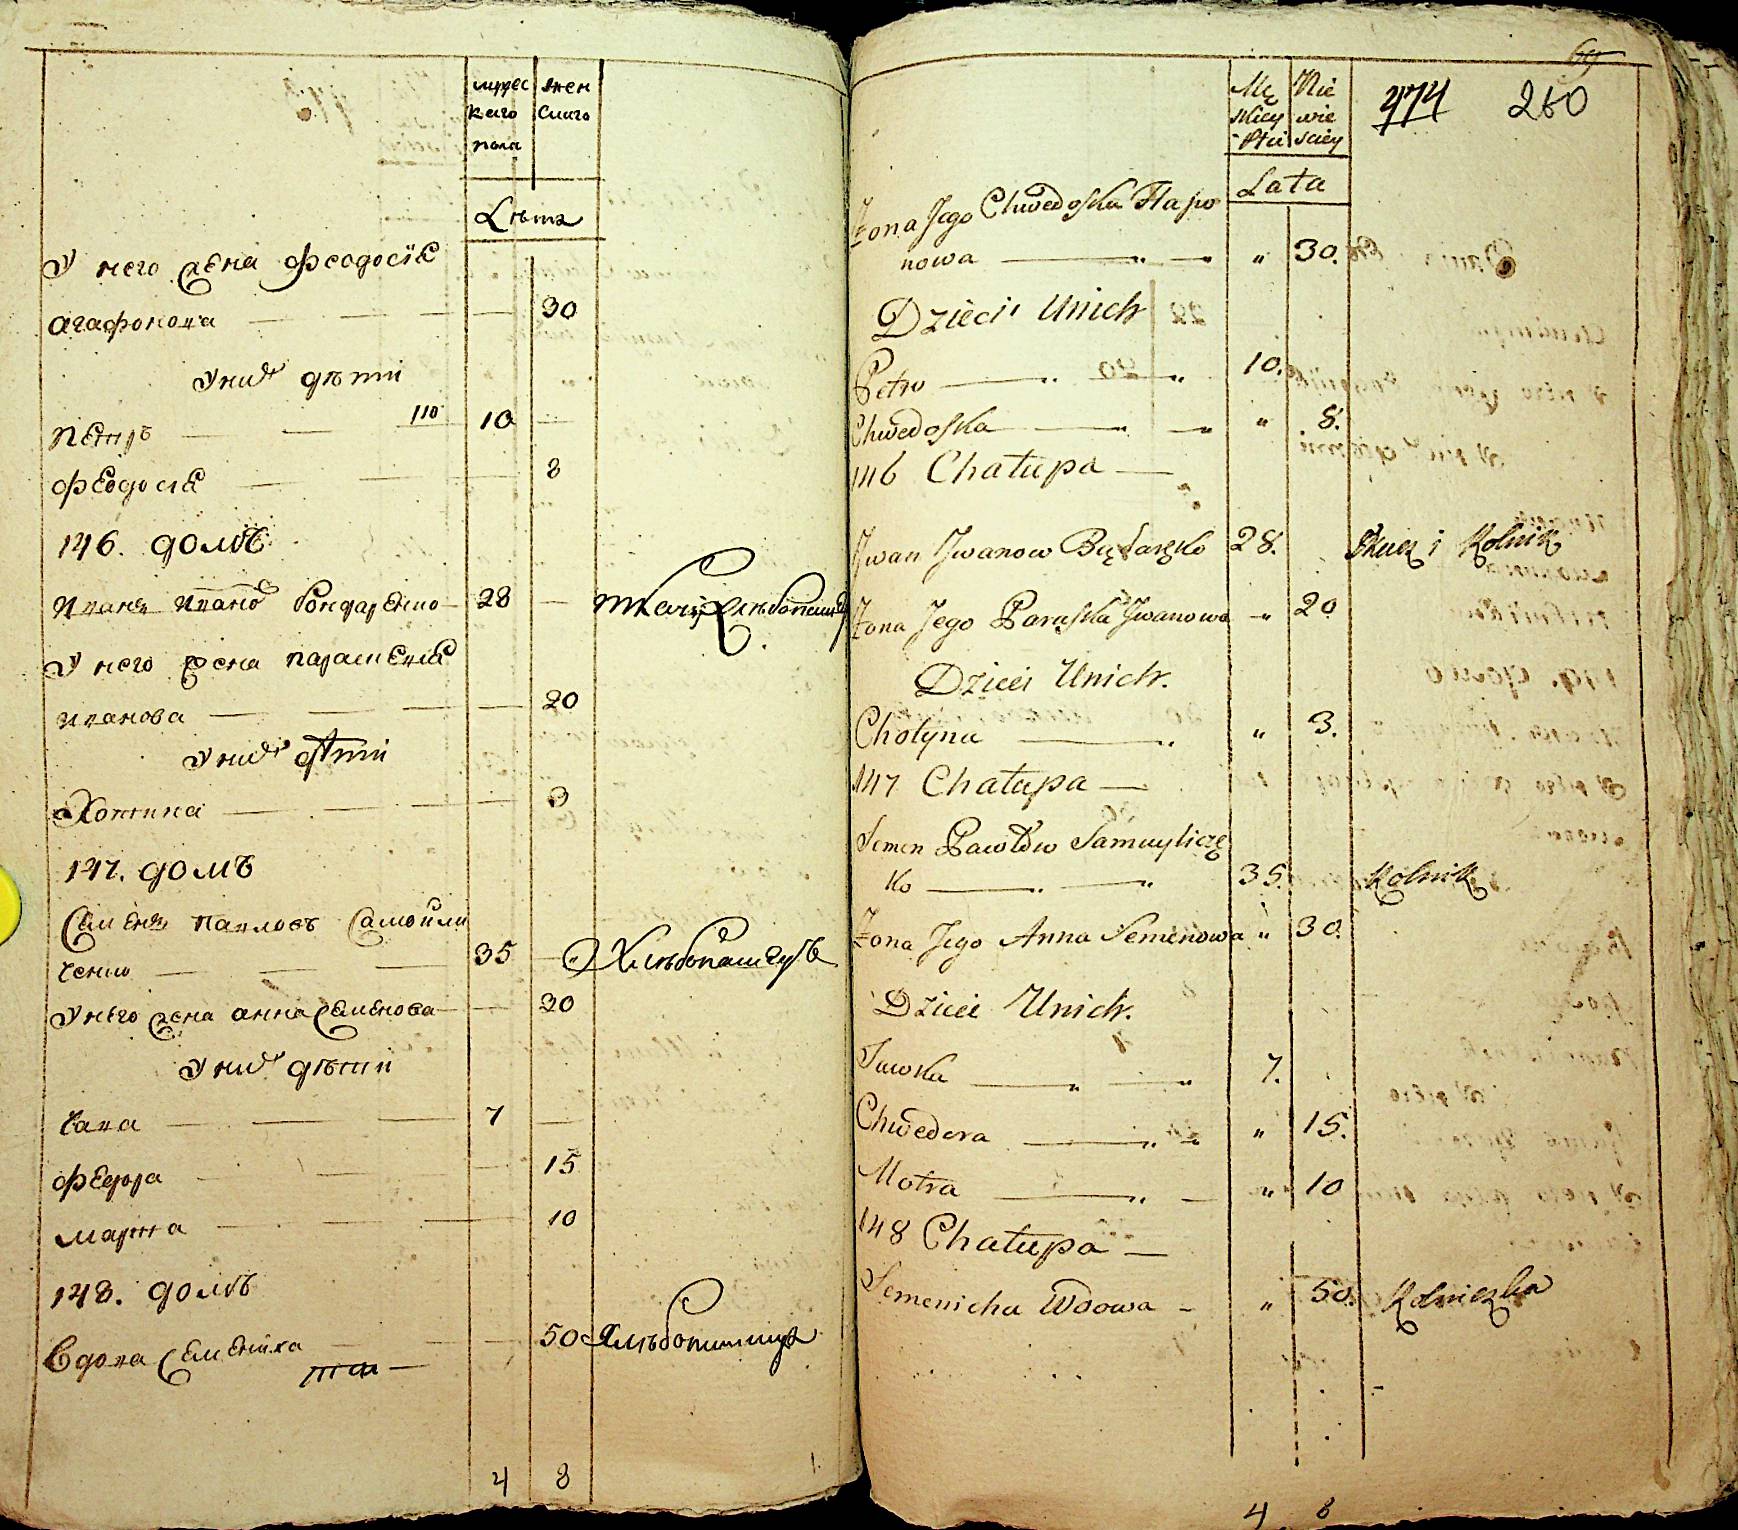 мужес
каго
пола
жен
скаго
Лѣта
У него жена феодосіѧ
агафонова 30
У них дѣти
110
Петръ 10
феодосіѧ 8
146. домъ
Иванъ Ивановъ бондаренко 28 ткачъ, хлѣбопашецъ
У него жена параскевіѧ
Иванова 20
У них дѣти
Хотина 3
147. домъ
Семенъ Павловъ Самойли
ченко 35 Хлѣбопашецъ
У него жена анна Семенова 30
У них дѣти
Сава 7
федора 15
марта 10
148. домъ
Вдова Семениха 50 Хлѣбопашица
4 8
69
Mę
skiey
Płci
Nie
wie
sciey
474 260
Lata
Żona Jego Chwedoska Hapo
nowa " 30.
Dzieci Unich
Petro 10.
Chwedoska " 8.
146 Chałupa
Jwan Jwanow Bądaręko 28. Tkacz i Rolnik
Żona Jego Paraska Jwanowa " 20
Dzieci Unich.
Chotyna " 3.
147 Chałupa
Semen Pawłow Samuyliczę
ko 35. Rolnik
Żona Jego Anna Semenowa " 30.
Dzieci Unich.
Sawka 7.
Chwedora " 15.
Motra " 10
148 Chałupa
Semenicha Wdowa " 50. Rolniczka
4 8